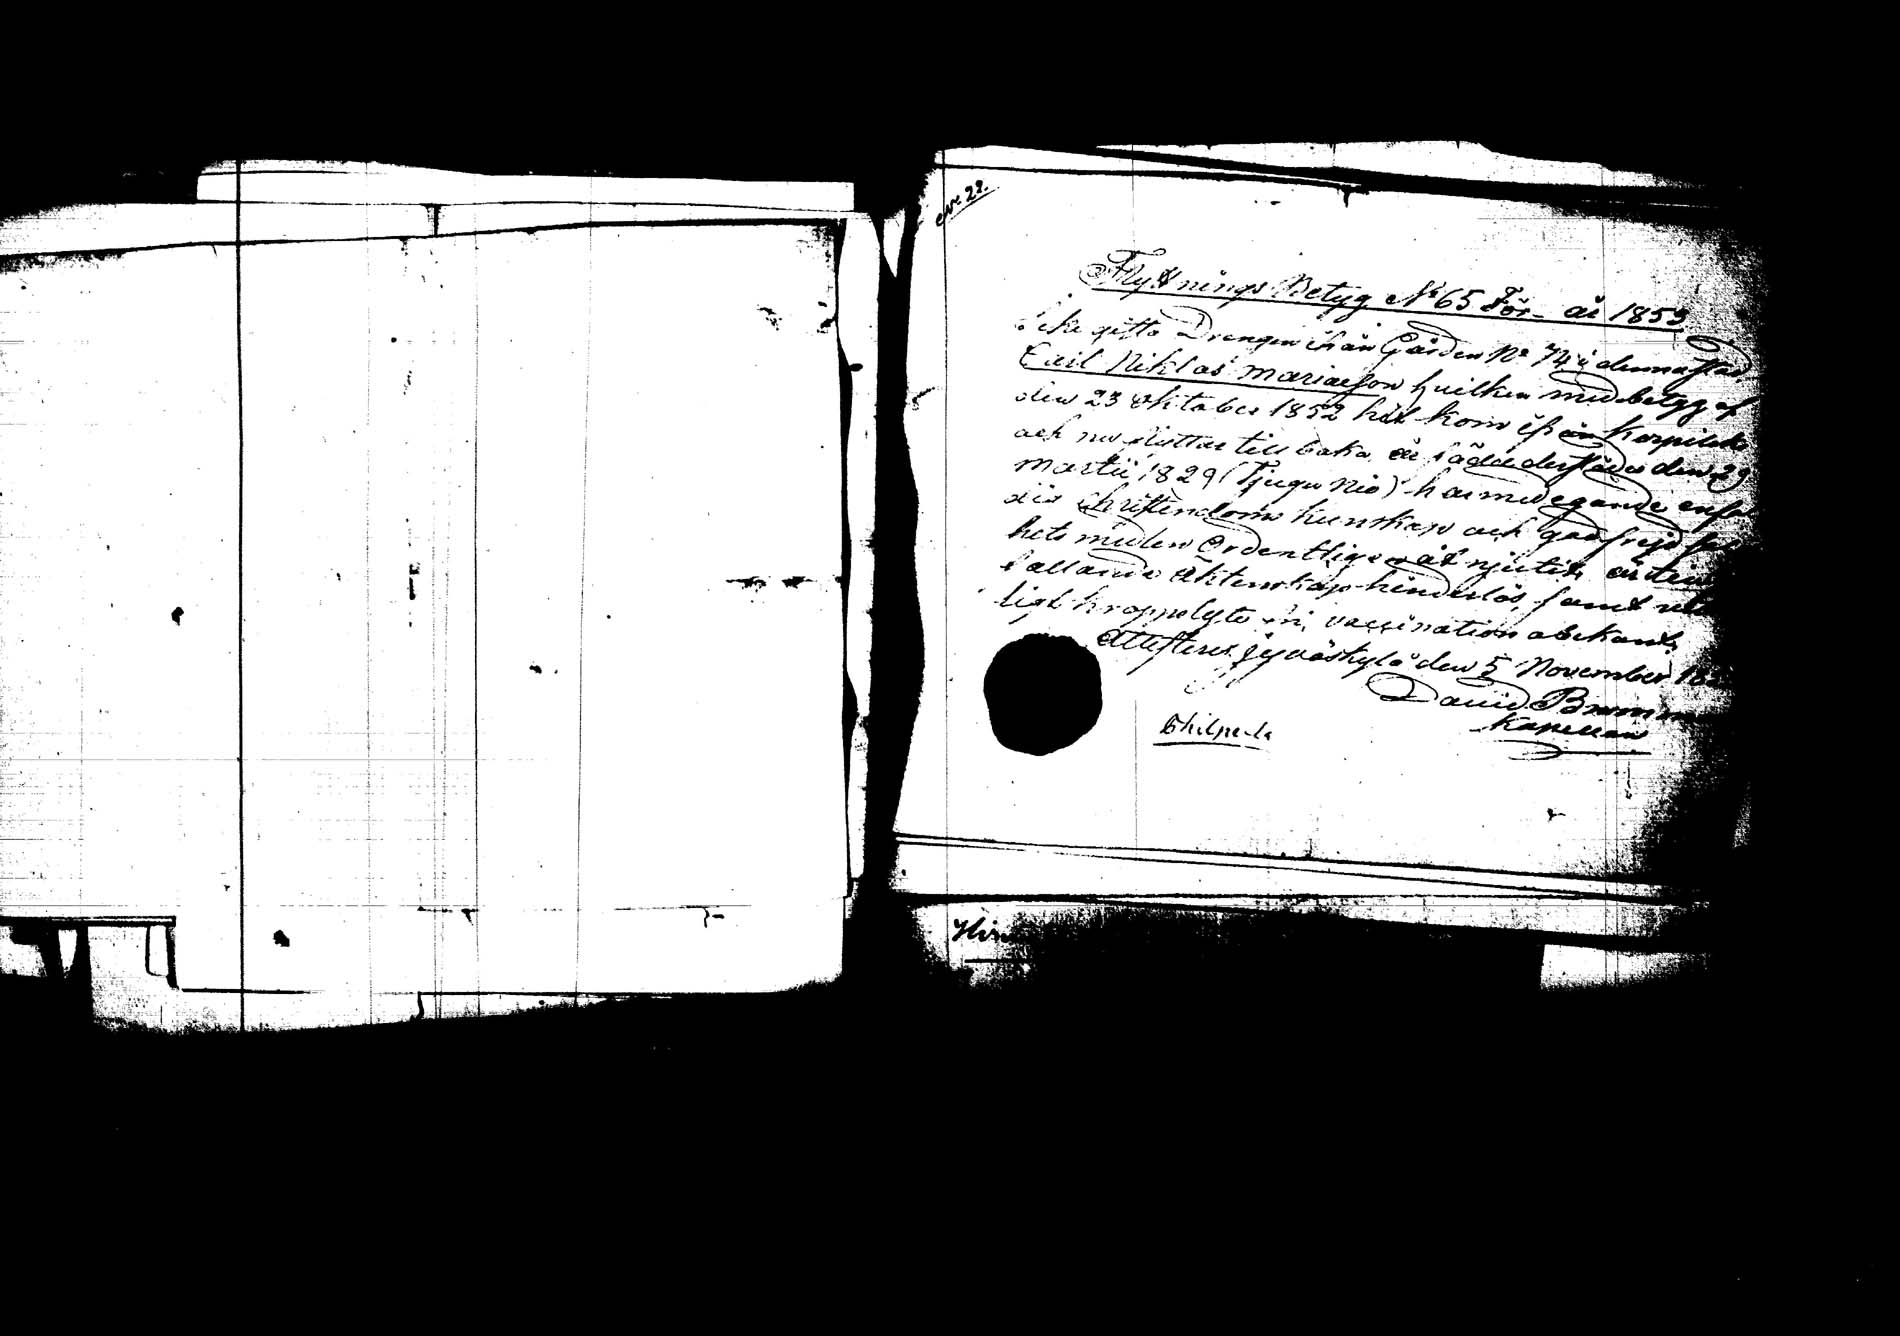 No 22.
Flyttnings Betyg No 65 För år 1853
Icke gifta Drengen ifrån Gården No 74 i denna stad,
Carl Niklas Mariaesson hvilken med betyg af
den 23 Oktober 1852 hit kom ifrån Korpilaks
och nu flyttar till baka, är född derstädes den 29
Martii 1829 (Tjugu Nio) har med egande
Christendoms kunskap och god frejd
hets medlen Ordentligen åt njutit, är till
ballande Äktenskap hinderlös, samt
ligt kroppslyte fri, vaccination obekant,
Attesteras Jyväskylä den 5 November
David
Kapellan